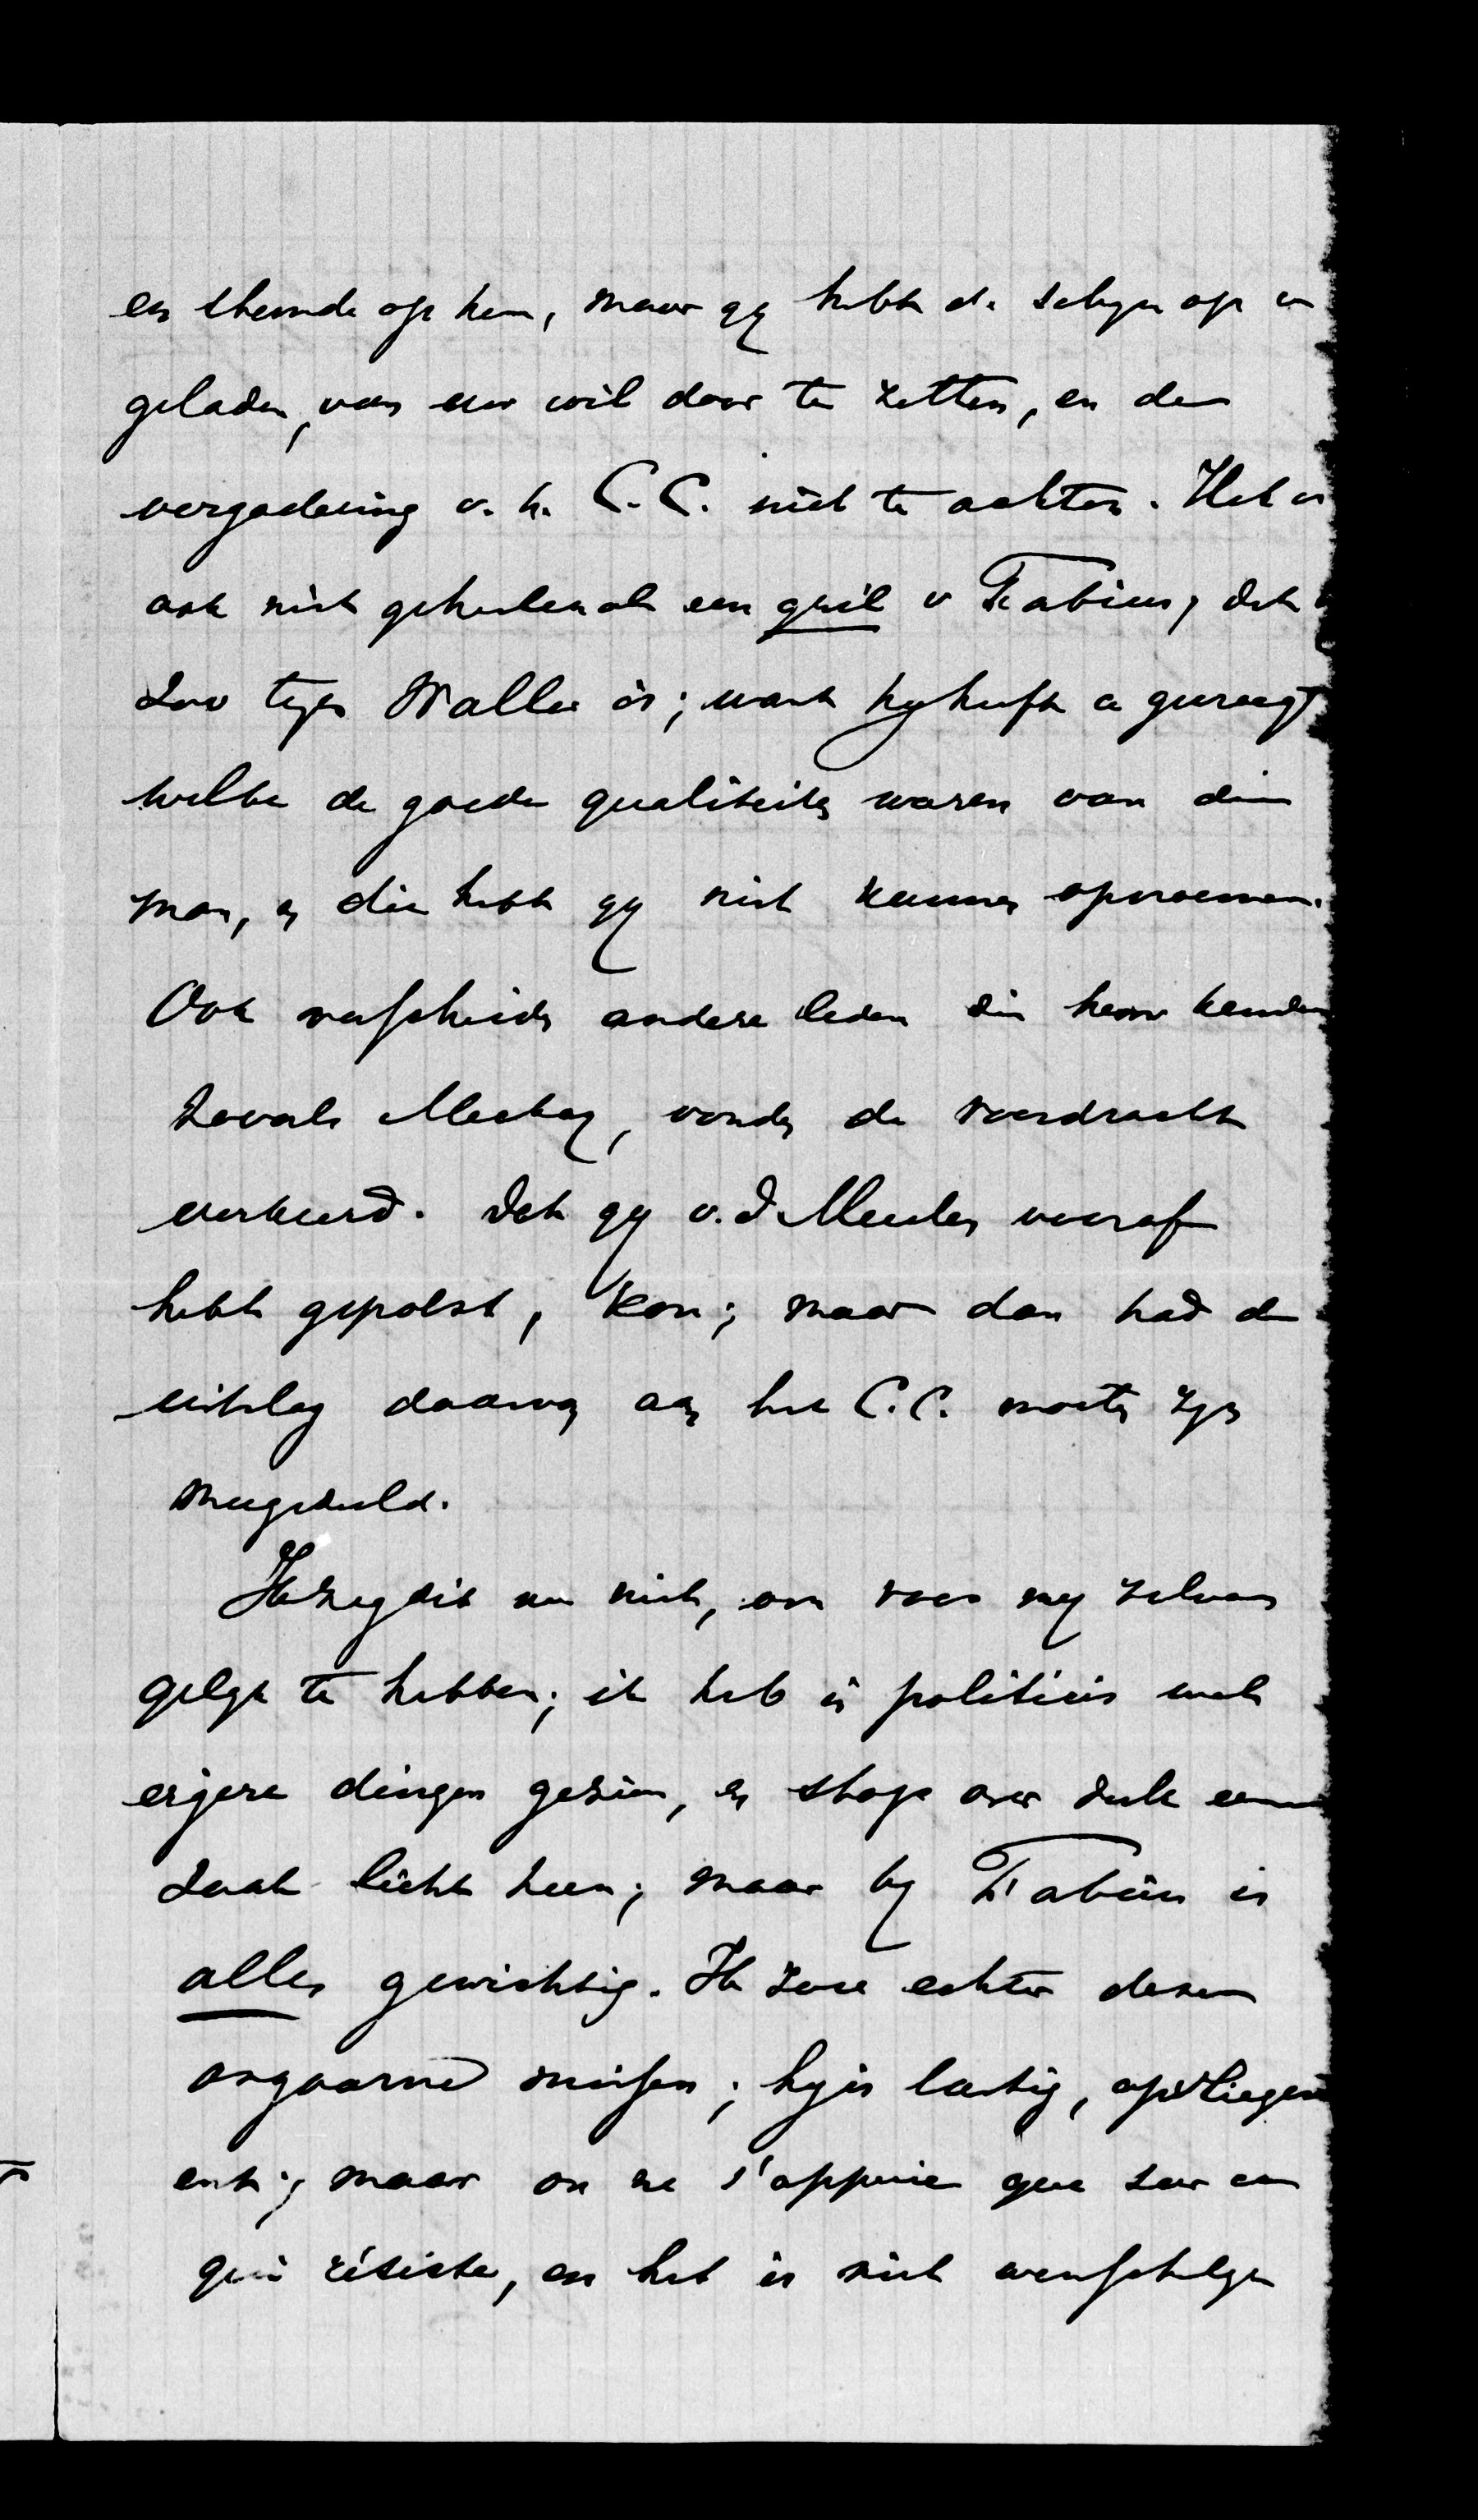 en stemde op hem, maar gy hebt de schyn op u
geladen, van uw wil door te zetten, en de
vergadering v. h. C.C. niet te achten. Het is
ook niet geheel als een gril v Fabius, dat
zoo tegen Waller is; want hy heeft u gevraagd
welke de goede qualiteiten waren van dien
man, en die hebt gy niet kunnen opnoemen.
Ook verscheiden andere leden die hem kenden
zooals , vonden de voordracht
verkeerd. Dat gy v. d Meulen vooraf
hebt gepolst, kon; maar dan had de
uitslag daarvan aan het C.C. moeten zyn
meegedeeld.
Ik zeg dit nu niet, om voor my zelven
gelyk te hebben; ik heb in politicis wel
ergere dingen gezien, en stap over zulk een
zaak licht heen; maar by Fabius is
alles gewichtig. Ik zou echter dezen
ongaarne missen; hy is lastig, opvliegend
enz; maar on ne s'appuie que sur ce
qui résiste, en het is niet wenschelyk